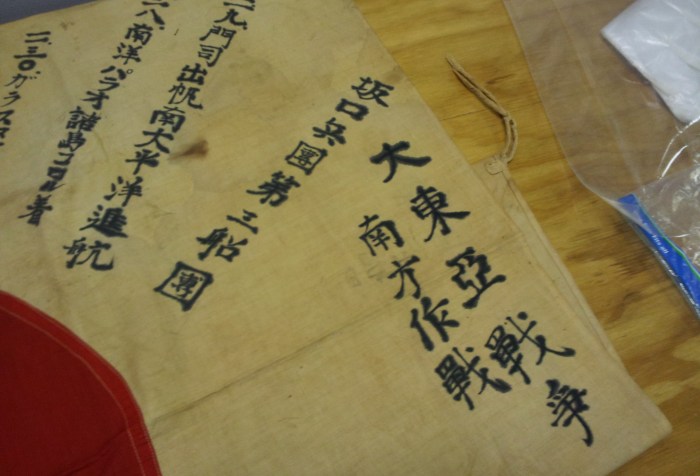 大東亞戰爭
南方作戰
坂口兵團第三船團
一九門司出帆南太平洋進航
一八.南洋パラオ諸島コロル着
二.三〇.ガラス